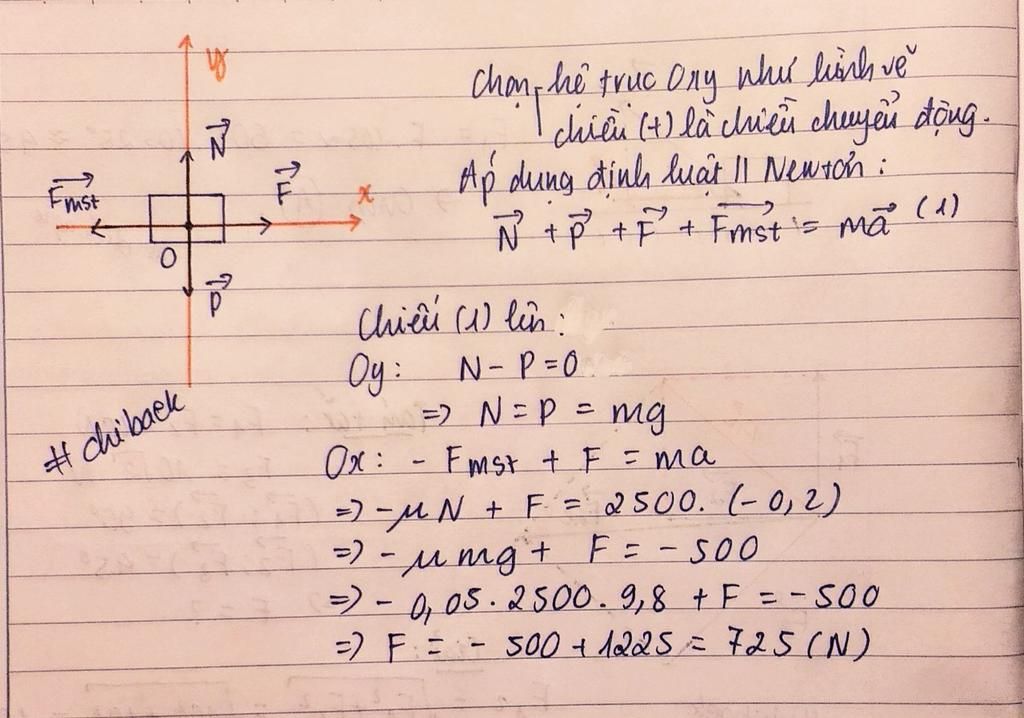 y
N⃗
F⃗mst
F⃗
x
O
P⃗
Chọn hệ trục Oxy như hình vẽ
chiều (+) là chiều chuyển động.
Áp dụng định luật II Newton :
N⃗ + P⃗ + F⃗ + F⃗mst = ma⃗ (1)
Chiếu (1) lên :
Oy : N - P = 0
=> N = P = mg
# chibaek
Ox : - Fmst + F = ma
=> -μN + F = 2500. (-0,2)
=> -μmg + F = - 500
=> - 0,05. 2500. 9,8 + F = - 500
=> F = - 500 + 1225 = 725 (N)